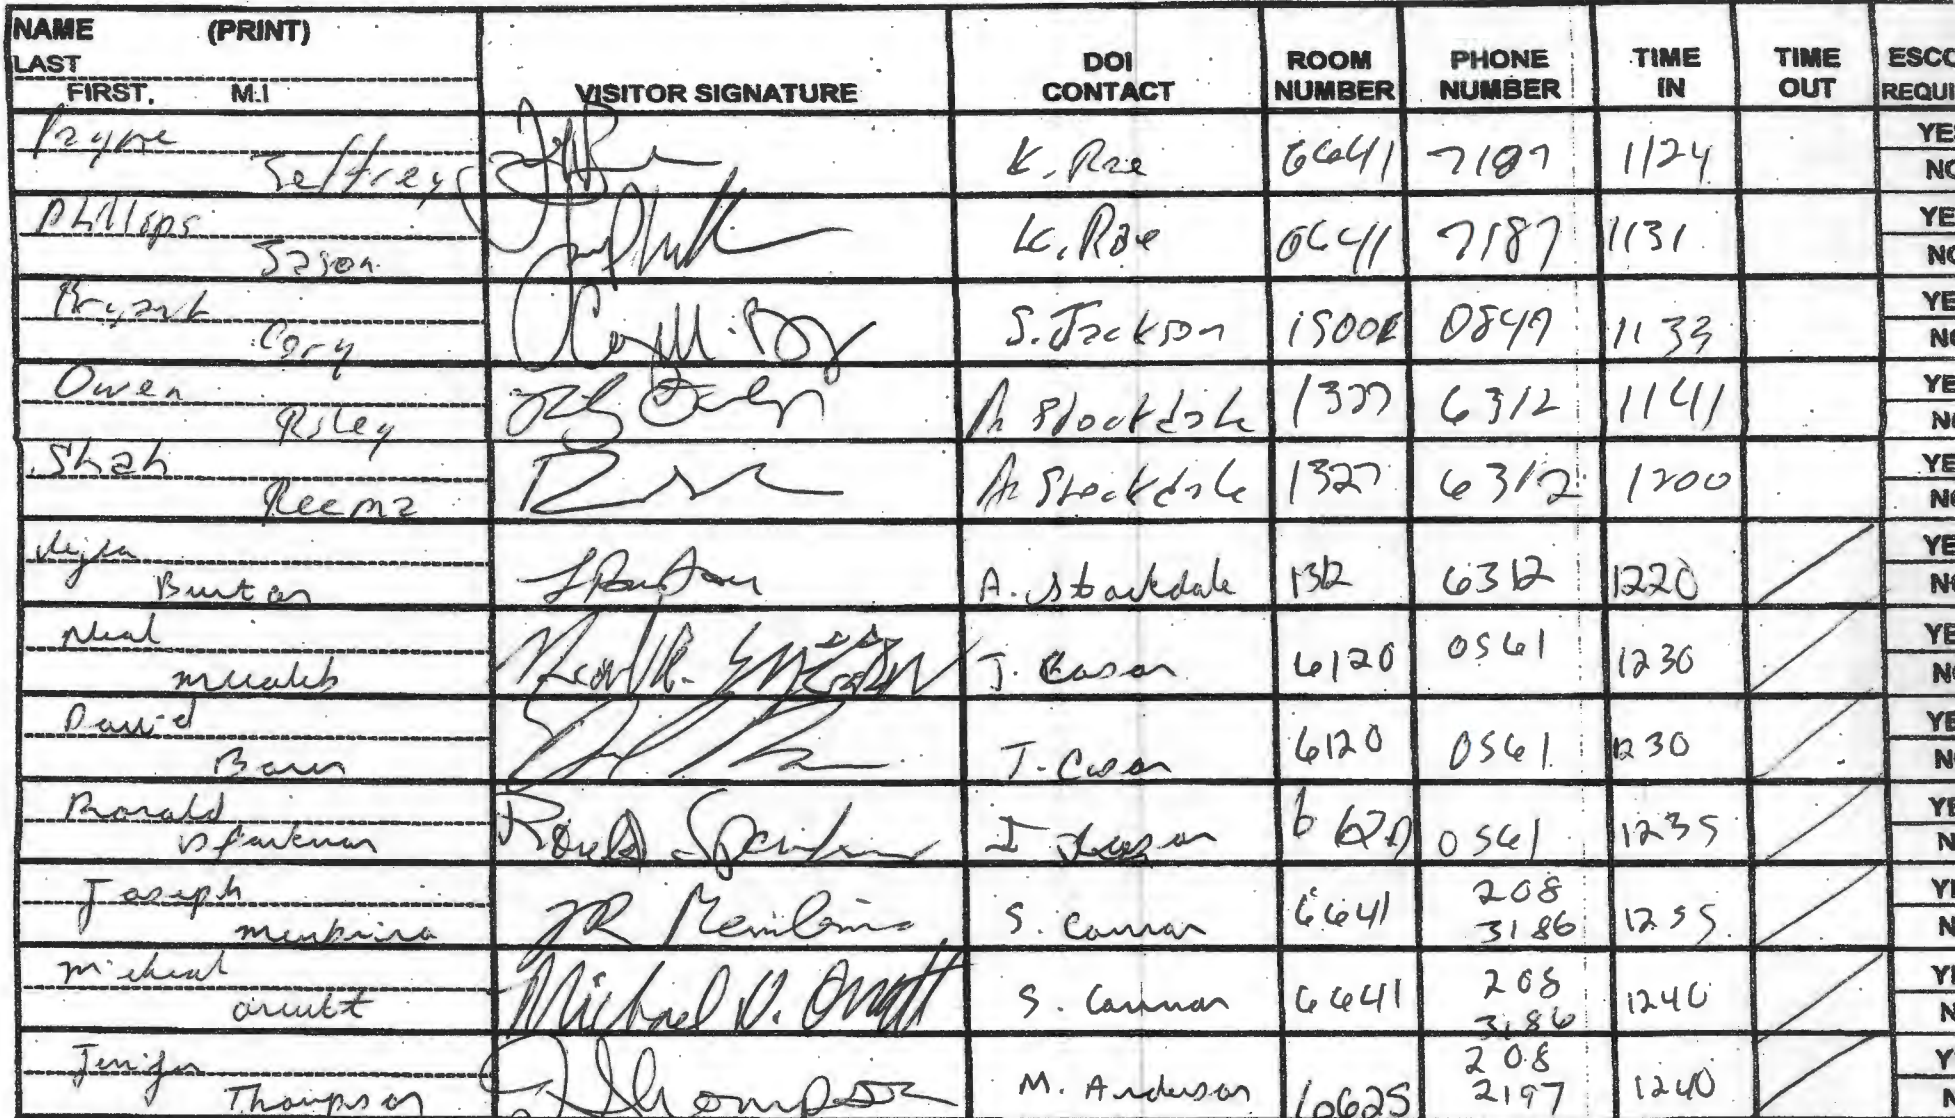 NAME (PRINT)
LAST
FIRST, M.I
VISITOR SIGNATURE
DOI CONTACT
ROOM NUMBER
PHONE NUMBER
TIME IN
TIME OUT
ESCO
REQUI
Payne
Jeffrey
K. Rae 6641 7187 1124
YE
NO
Phillips
Jason
K. Rae 6641 7187 1131
YE
NO
Bryant
Cory
S. Jackson 0847 1133
YE
NO
Owen
Riley
A Stockdale 1327 6312 1141
YE
NO
Shah
Reema
A Stockdale 1327 6312 1200
YE
NO
Burton
A. Stockdale 1312 6312 1220
YE
NO
Neal
J. Cason 6120 0561 1230
YE
NO
David
J. Cason 6120 0561 1230
YE
N
Ronald
Sparkman
Cason 0561 1235
YE
N
Joseph
S. Cannon 6641 208 3186 1255
YE
N
Micheal
Michael V. Orcutt
S. Cannon 6641 208 3186 1240
YE
N
Jenifer
Thompson
J Thompson
M. Anderson 6625 208 2197 1240
Y
N